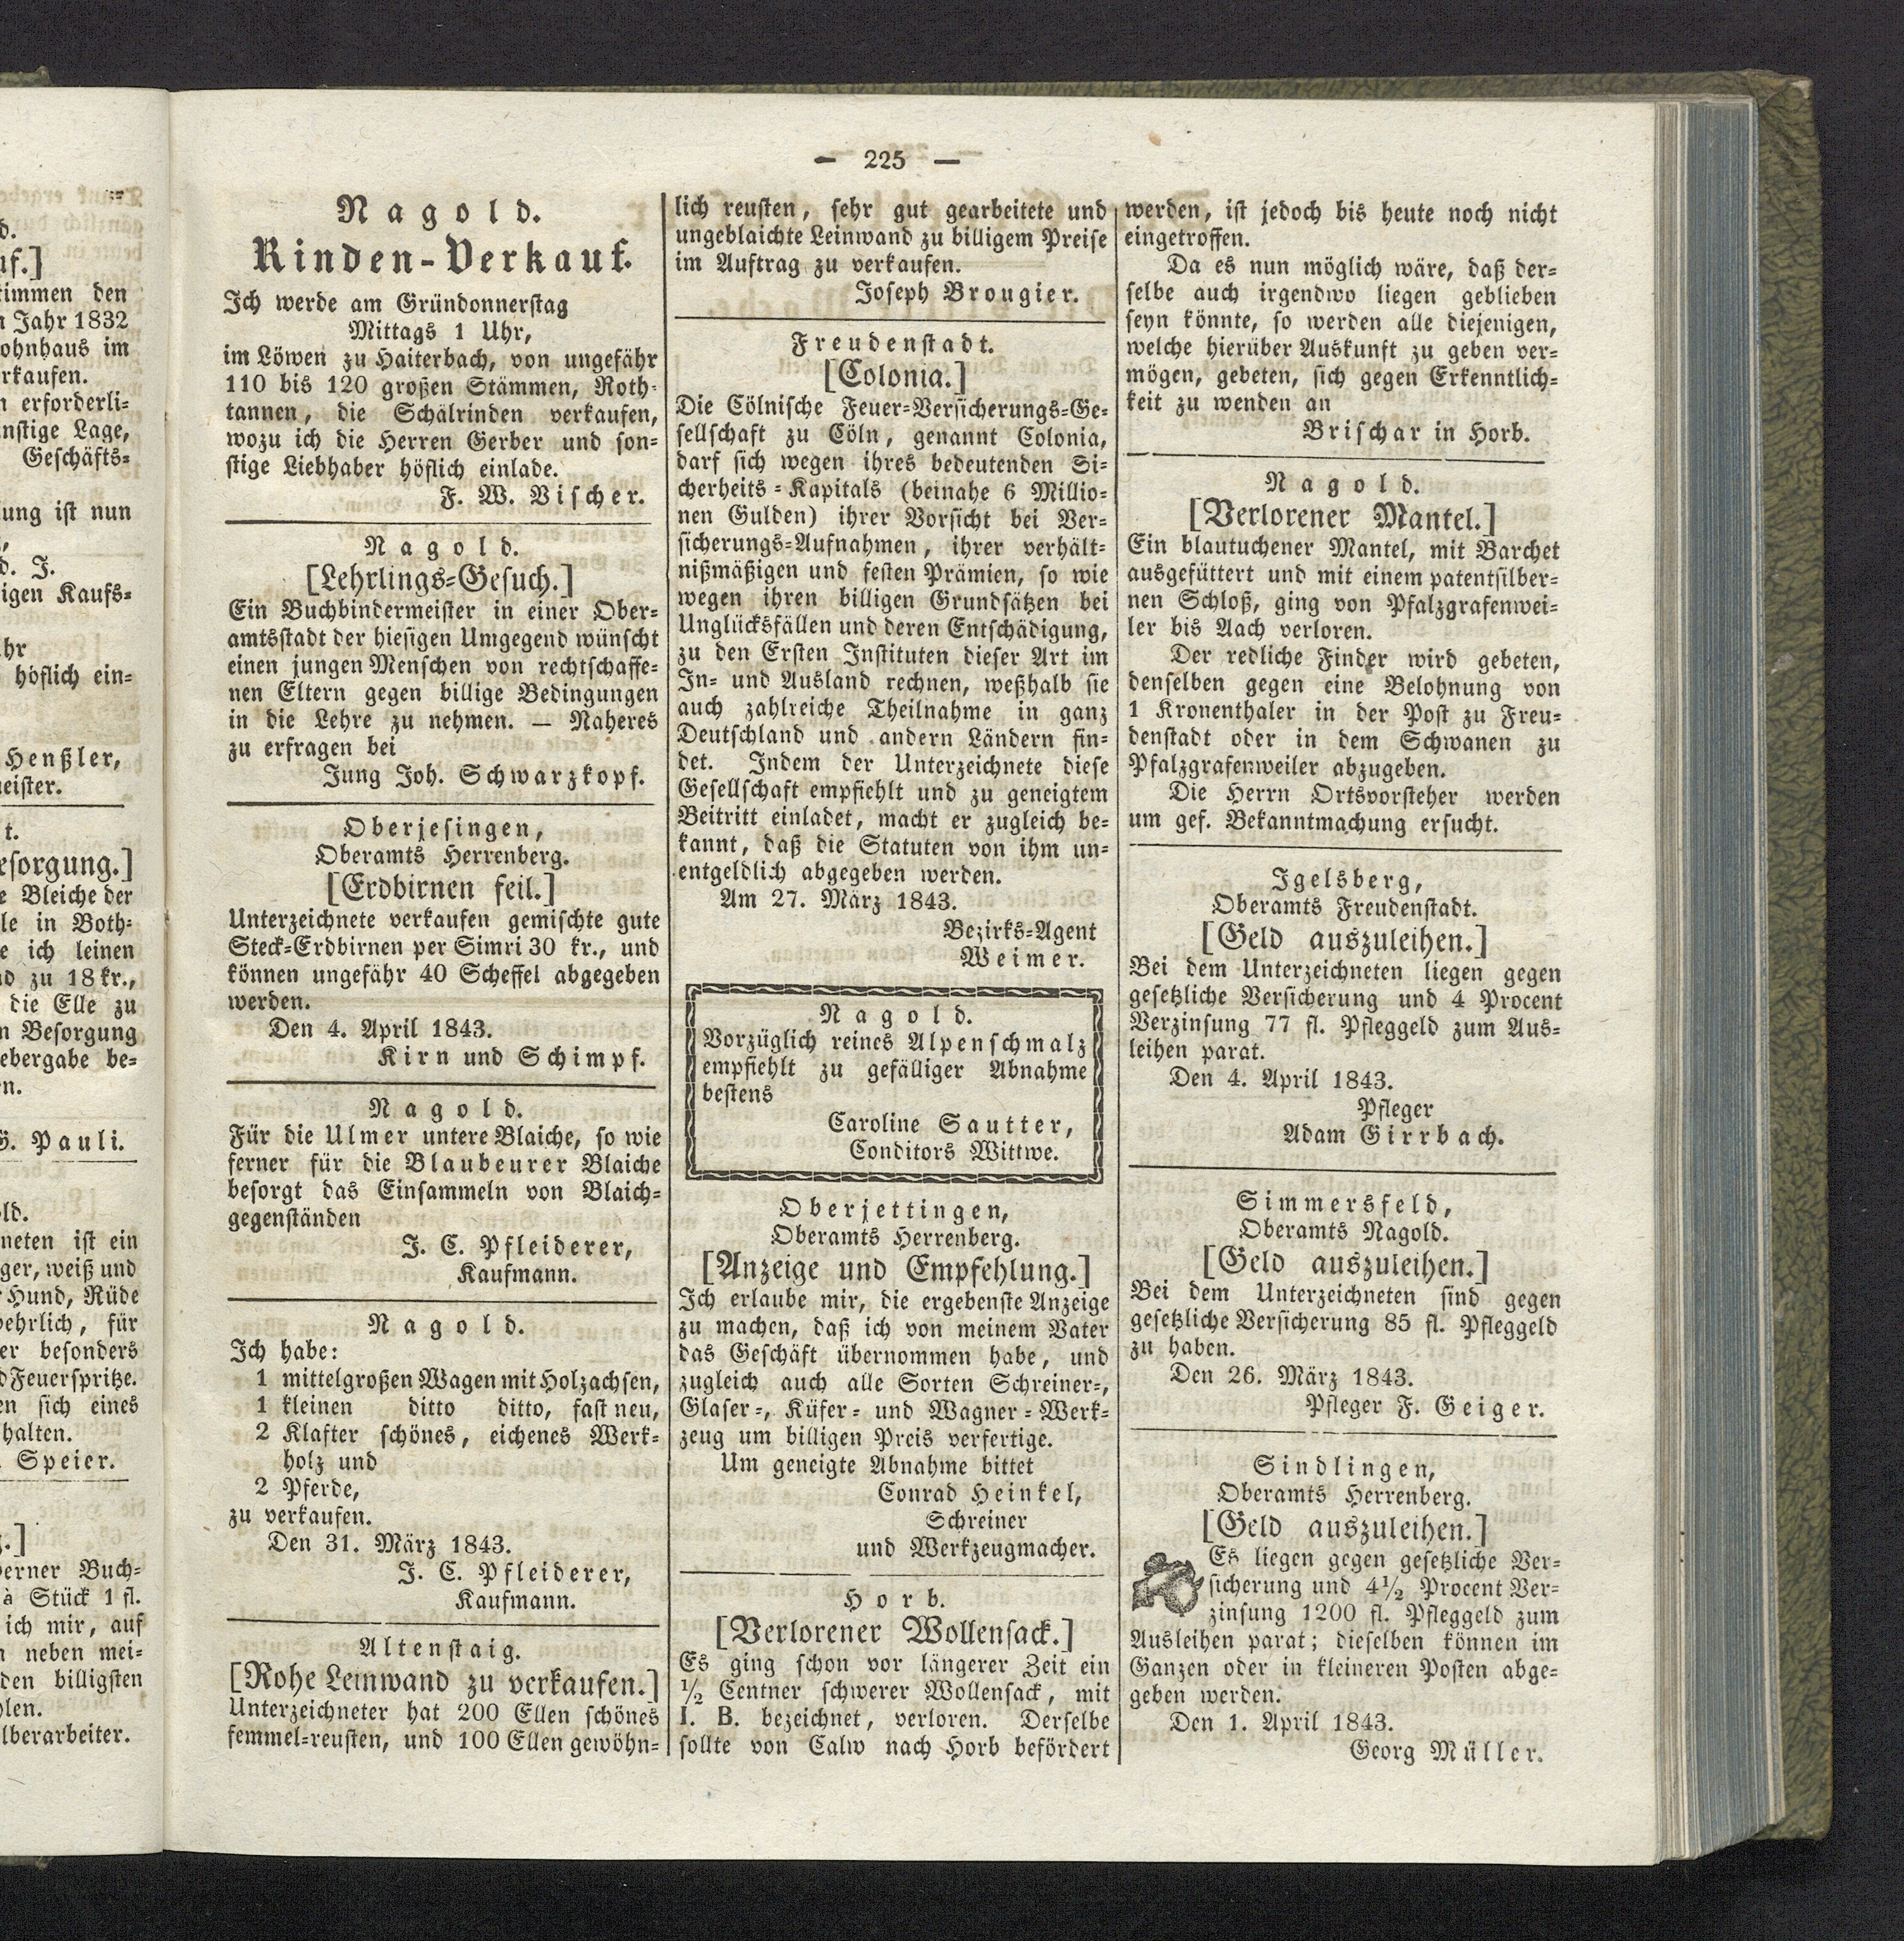 — 225 —
Nagold.
Rinden-Verkauf.
Ich werde am Gründonnerstag
Mittags 1 Uhr,
im Löwen zu Haiterbach, von ungefähr
110 bis 120 großen Stämmen, Roth-
tannen, die Schälrinden verkaufen,
wozu ich die Herren Gerber und son-
stige Liebhaber höflich einlade.
F. W. Vischer.
Nagold.
[Lehrlings-Gesuch.]
Ein Buchbindermeister in einer Ober-
amtsstadt der hiesigen Umgegend wünscht
einen jungen Menschen von rechtschaffe-
nen Eltern gegen billige Bedingungen
in die Lehre zu nehmen. — Näheres
zu erfragen bei
Jung Joh. Schwarzkopf.
Oberjesingen,
Oberamts Herrenberg.
[Erdbirnen feil.]
Unterzeichnete verkaufen gemischte gute
Steck-Erdbirnen per Simri 30 kr., und
können ungefähr 40 Scheffel abgegeben
werden.
Den 4. April 1843.
Kirn und Schimpf.
Nagold.
Für die Ulmer untere Blaiche, so wie
ferner für die Blaubeurer Blaiche
besorgt das Einsammeln von Blaich-
gegenständen
J. C. Pfleiderer,
Kaufmann.
Nagold.
Ich habe:
1 mittelgroßen Wagen mit Holzachsen,
1 kleinen ditto ditto, fast neu,
2 Klafter schönes, eichenes Werk-
holz und
2 Pferde,
zu verkaufen.
Den 31. März 1843.
J. C. Pfleiderer,
Kaufmann.
Altenstaig.
[Rohe Leinwand zu verkaufen.]
Unterzeichneter hat 200 Ellen schönes
femmel-reusten, und 100 Ellen gewöhn-
lich reusten, sehr gut gearbeitete und
ungeblaichte Leinwand zu billigem Preise
im Auftrag zu verkaufen.
Joseph Brougier.
Freudenstadt.
[Colonia.]
Die Cölnische Feuer-Versicherungs-Ge-
sellschaft zu Cöln, genannt Colonia,
darf sich wegen ihres bedeutenden Si-
cherheits-Kapitals (beinahe 6 Millio-
nen Gulden) ihrer Vorsicht bei Ver-
sicherungs-Aufnahmen, ihrer verhält-
nißmäßigen und festen Prämien, so wie
wegen ihren billigen Grundsätzen bei
Unglücksfällen und deren Entschädigung,
zu den Ersten Instituten dieser Art im
In- und Ausland rechnen, weßhalb sie
auch zahlreiche Theilnahme in ganz
Deutschland und andern Ländern fin-
det. Indem der Unterzeichnete diese
Gesellschaft empfiehlt und zu geneigtem
Beitritt einladet, macht er zugleich be-
kannt, daß die Statuten von ihm un-
entgeldlich abgegeben werden.
Am 27. März 1843.
Bezirks-Agent
Weimer.
Nagold.
Vorzüglich reines Alpenschmalz
empfiehlt zu gefälliger Abnahme
bestens
Caroline Sautter,
Conditors Wittwe.
Oberjettingen,
Oberamts Herrenberg.
[Anzeige und Empfehlung.]
Ich erlaube mir, die ergebenste Anzeige
zu machen, daß ich von meinem Vater
das Geschäft übernommen habe, und
zugleich auch alle Sorten Schreiner-,
Glaser-, Küfer- und Wagner-Werk-
zeug um billigen Preis verfertige.
Um geneigte Abnahme bittet
Conrad Heinkel,
Schreiner
und Werkzeugmacher.
Horb.
[Verlorener Wollensack.]
Es ging schon vor längerer Zeit ein
½ Centner schwerer Wollensack, mit
I. B. bezeichnet, verloren. Derselbe
sollte von Calw nach Horb befördert
werden, ist jedoch bis heute noch nicht
eingetroffen.
Da es nun möglich wäre, daß der-
selbe auch irgendwo liegen geblieben
seyn könnte, so werden alle diejenigen,
welche hierüber Auskunft zu geben ver-
mögen, gebeten, sich gegen Erkenntlich-
keit zu wenden an
Brischar in Horb.
Nagold.
[Verlorener Mantel.]
Ein blautuchener Mantel, mit Barchet
ausgefüttert und mit einem patentsilber-
nen Schloß, ging von Pfalzgrafenwei-
ler bis Aach verloren.
Der redliche Finder wird gebeten,
denselben gegen eine Belohnung von
1 Kronenthaler in der Post zu Freu-
denstadt oder in dem Schwanen zu
Pfalzgrafenweiler abzugeben.
Die Herrn Ortsvorsteher werden
um gef. Bekanntmachung ersucht.
Igelsberg,
Oberamts Freudenstadt.
[Geld auszuleihen.]
Bei dem Unterzeichneten liegen gegen
gesetzliche Versicherung und 4 Procent
Verzinsung 77 fl. Pfleggeld zum Aus-
leihen parat.
Den 4. April 1843.
Pfleger
Adam Girrbach.
Simmersfeld,
Oberamts Nagold.
[Geld auszuleihen.]
Bei dem Unterzeichneten sind gegen
gesetzliche Versicherung 85 fl. Pfleggeld
zu haben.
Den 26. März 1843.
Pfleger F. Geiger.
Sindlingen,
Oberamts Herrenberg.
[Geld auszuleihen.]
Es liegen gegen gesetzliche Ver-
sicherung und 4½ Procent Ver-
zinsung 1200 fl. Pfleggeld zum
Ausleihen parat; dieselben können im
Ganzen oder in kleineren Posten abge-
geben werden.
Den 1. April 1843.
Georg Müller.